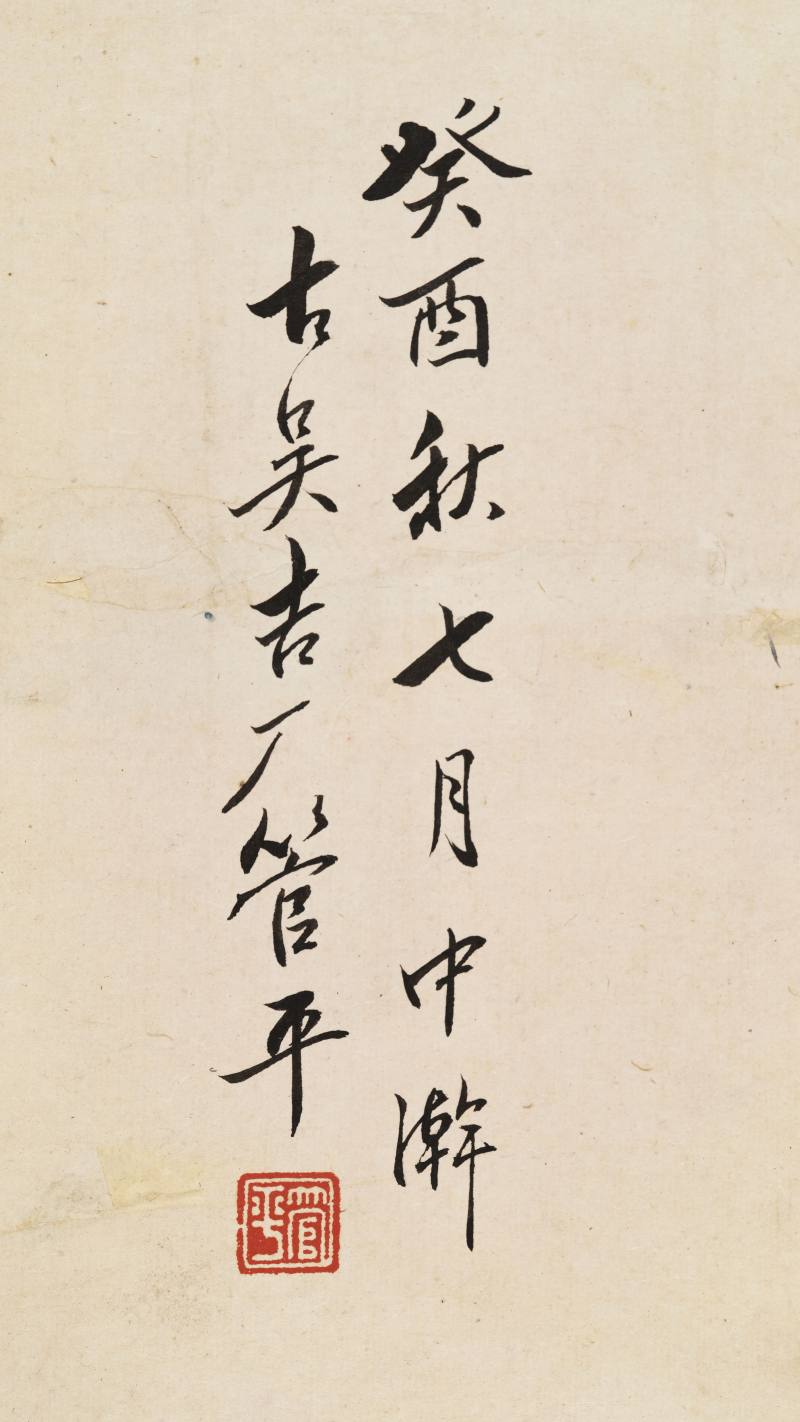 癸酉秋七月中澣
古吴吉厂管平
管平